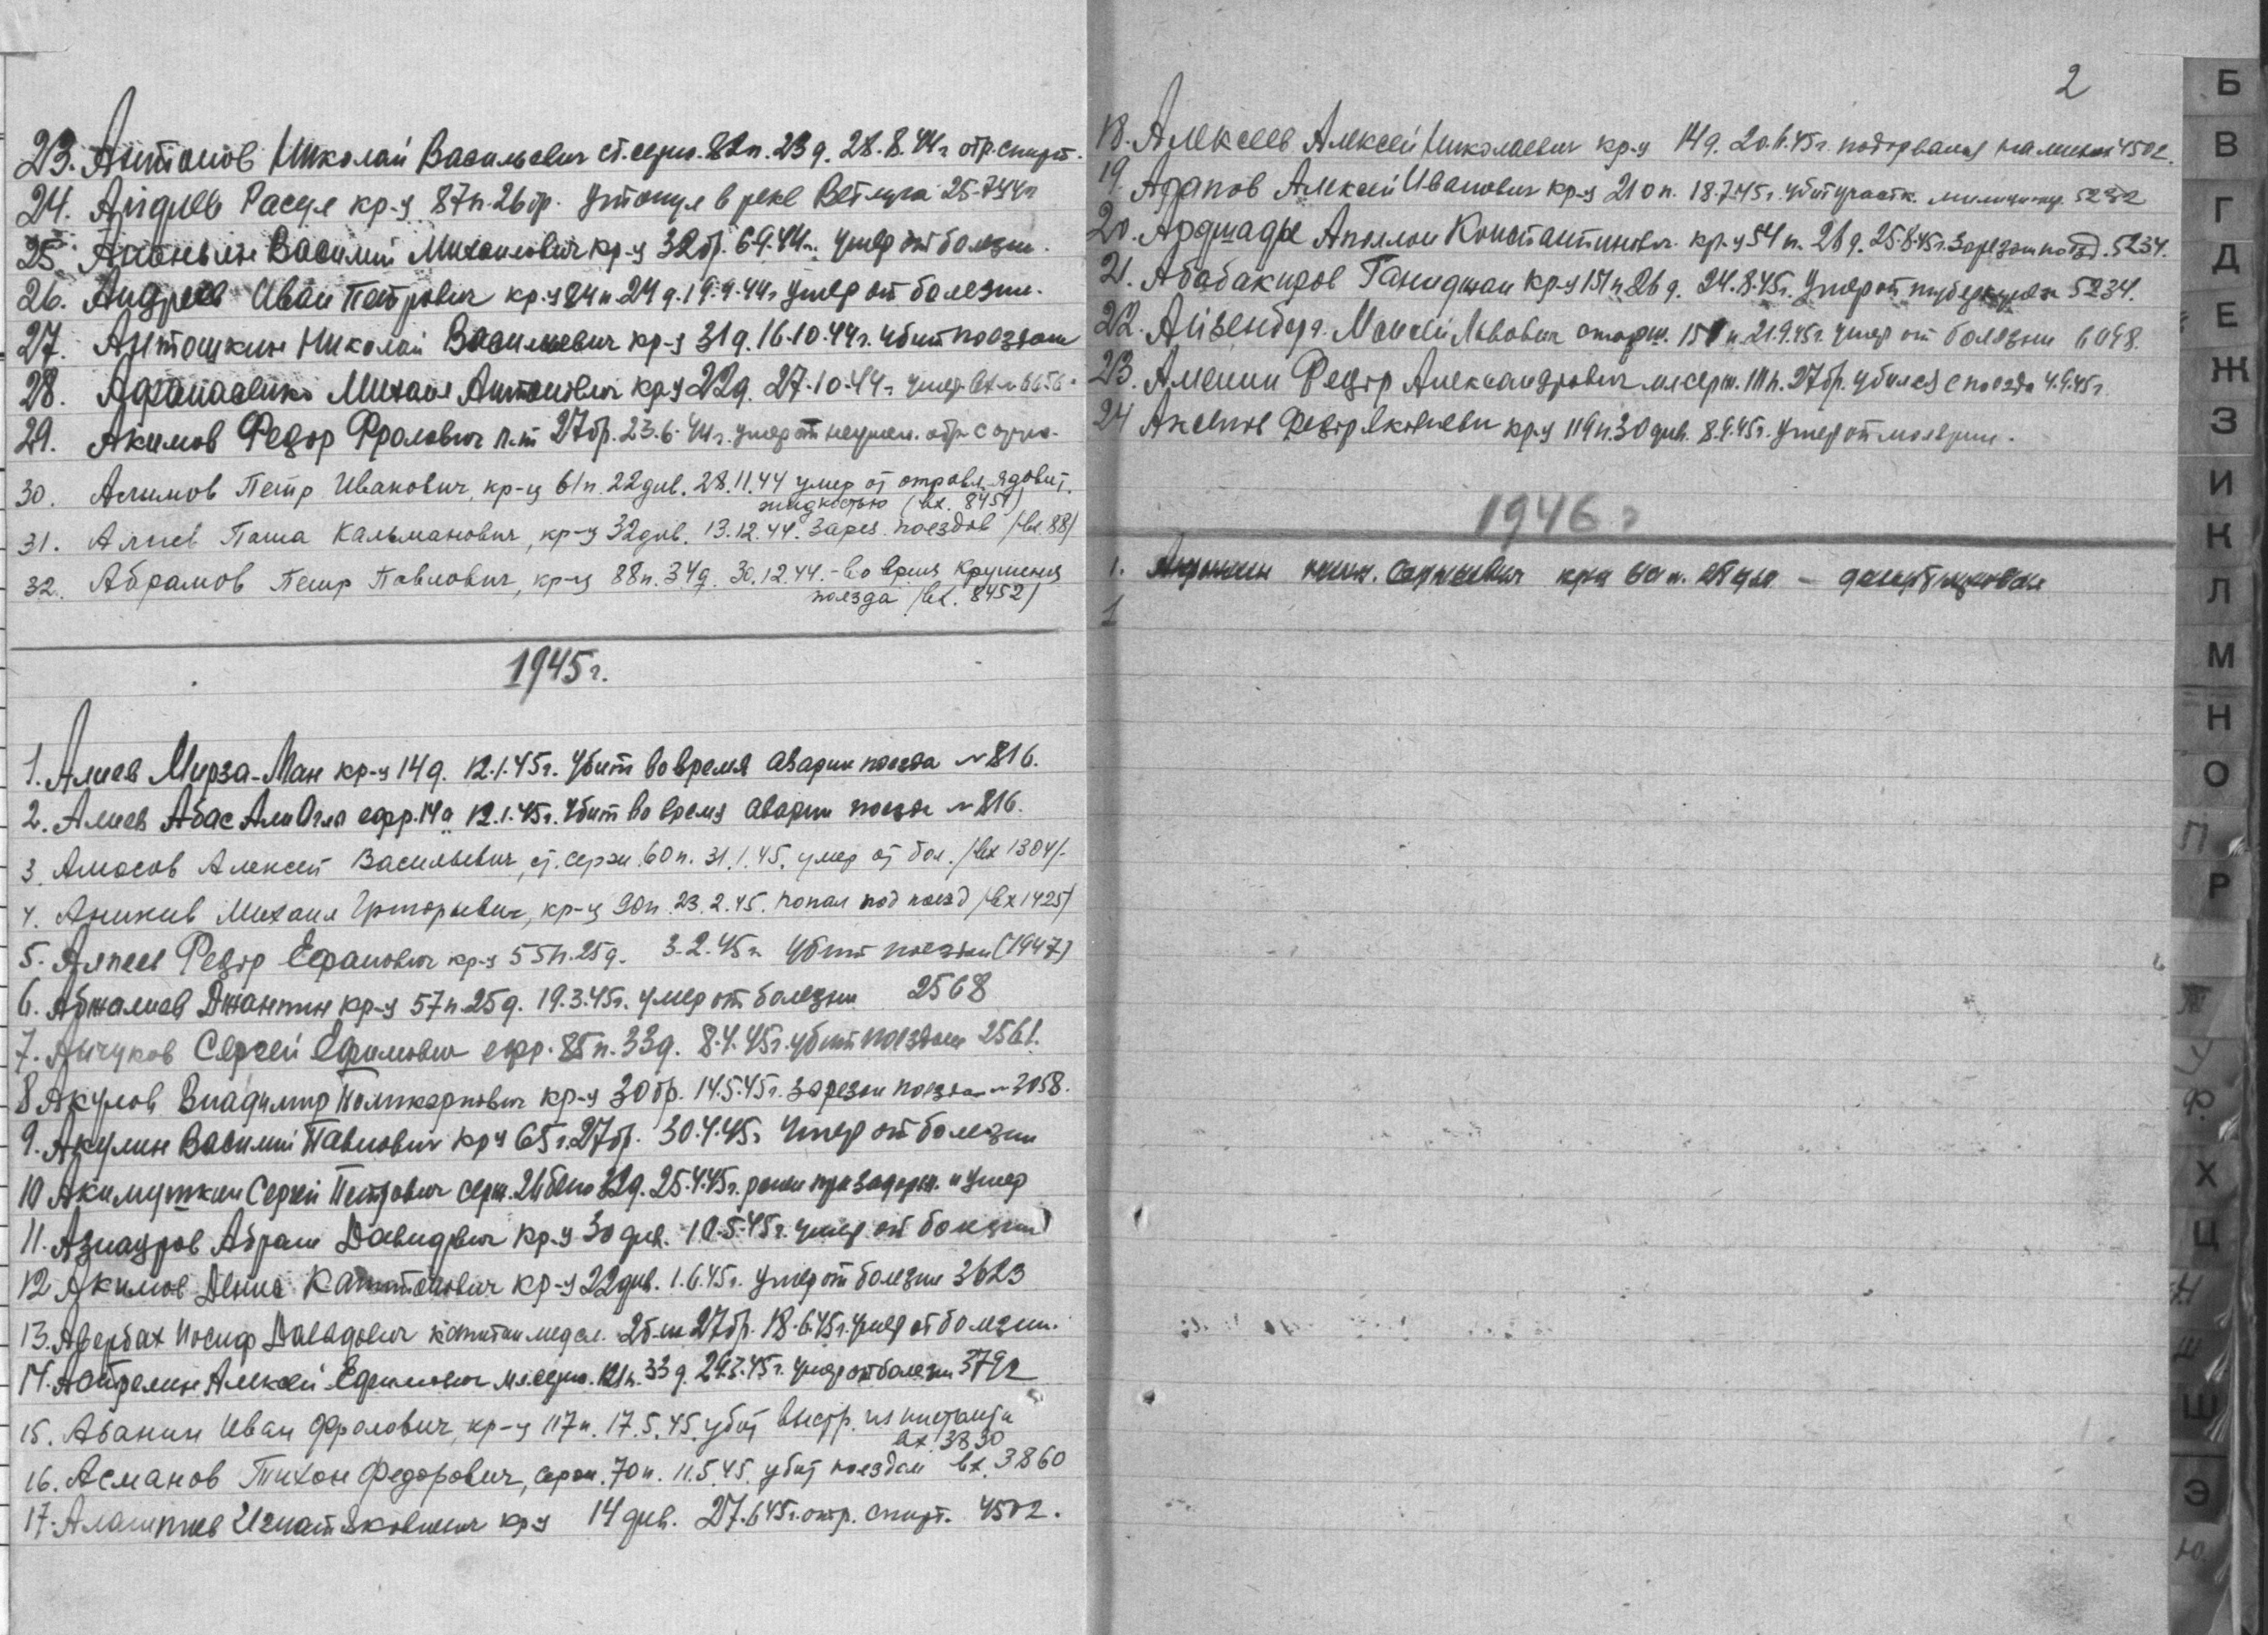 23. Антонов Николай Васильевич ст.серж. 82п. 23д. 28.8.44г отр.спирт.
24. Айдиев Расул кр-ц 87п. 26бр. Утонул в реке Ветлуга 25.7.44г
25. Ананьин Василий Михайлович кр-ц 32бр. 6.9.44г. Умер от болезни.
26. Андреев Иван Петрович кр-ц 84п. 24д. 19.9.44г Умер от болезни.
27. Антошкин Николай Васильевич кр-ц 31д. 16.10.44г. Убит поездом
28. Афанасенко Михаил Антонович кр-ц 22д. 27.10.44г Умер вх.№6656.
29. Акимов Федор Фролович 27бр. 23.6.44г. Умер от неумел. обр. с оруж.
30. Алимов Петр Иванович, кр-ц 61п. 22див. 28.11.44 умер от отравл. ядовит.
жидкостью (вх. 8451)
31. Алиев Паша Кальманович, кр-ц 32див. 13.12.44. Зарез. поездов /вх.88/
32. Абрамов Петр Павлович, кр-ц 88п. 34д. 30.12.44. - во время крушения
поезда /вх. 8452/
1945г.
1. Алиев Мирза-Ман кр-ц 14д. 12.1.45г. Убит во время аварии поезда №816.
2. Алиев Абас Али Огло ефр. 14д 12.1.45г. Убит во время аварии поезда №816.
3. Амосов Алексей Васильевич, ст. серж. 60п. 31.1.45. умер от бол. /вх 1304/.
4. Аникив Михаил Григорьевич, кр-ц 90п. 23.2.45. попал под поезд /вх 1425/
5. Алпеев Федор Ефанович кр-ц 55п. 25д. 3.2.45г Убит поездом (1947)
6. Абжалиев Джантин кр-ц 57п. 25д. 19.3.45г. Умер от болезни 2568
7. Лычуков Сергей Ефимович ефр. 85п. 33д. 8.4.45г. убит поездом 2561.
8 Акулов Владимир Поликарпович кр-ц 30бр. 14.5.45г. Зарезан поездом №3058.
9. Акулин Василий Павлович кр-ц 65г. 27бр. 30.4.45г Умер от болезни
10 Акимушкин Сергей Петрович серж. 32д. 25.4.45г. ранен при задерж. и умер
11. Азнауров Абрам Давидович кр-ц 30див. 10.5.45г. умер от болезни
12 Акимов Денис Капитонович кр-ц 22див. 1.6.45г. Умер от болезни 3623
13. Авербах Иосиф Давидович капитан медсл. 27бр. 18.6.45г. умер от болезни.
14. Алексей Ефимович мл.серж. 121п. 33д. 29.3.45г. Умер от болезни 3792
15. Аванин Иван Фролович, кр-ц 117п. 17.5.45. убит выстр. из
вх. 3830
16. Асманов Тихон Федорович, серж. 70п. 11.5.45. убит поездом вх. 3860
17. Игнат Яковлевич кр-ц 14див. 27.6.45г. отр. спирт. 4502.
2
18. Алексеев Алексей Николаевич кр-ц 14д. 20.6.45г. подорвался на минах 4502.
19. Агапов Алексей Иванович кр-ц 210п. 18.7.45г. Убит участк. милиционер. 5232
20. Аполлон Константинович. кр-ц 54п. 26д. 25.8.45г. Зарезан поезд. 5234.
21. Абабакиров Ганиджан кр-ц 26д. 24.8.45г. Умер от туберкулеза 5234.
22. Айзенберг. Моисей Львович старш. 21.9.45г. Умер от болезни 6098.
23. Аленин Федор Александрович мл.серж. 27бр. Убился с поезда 4.9.45г.
24 Аксенов Федор Яковлевич кр-ц 119п. 30див. 8.9.45г. Умер от малярии.
1946 г
1. Сергеевич 60п.
1
Б
В
Г
Д
Е
Ж
З
И
К
Л
М
Н
О
П
Р
Т
У
Ф
Х
Ц
Ч
Щ
Ш
Э
Ю